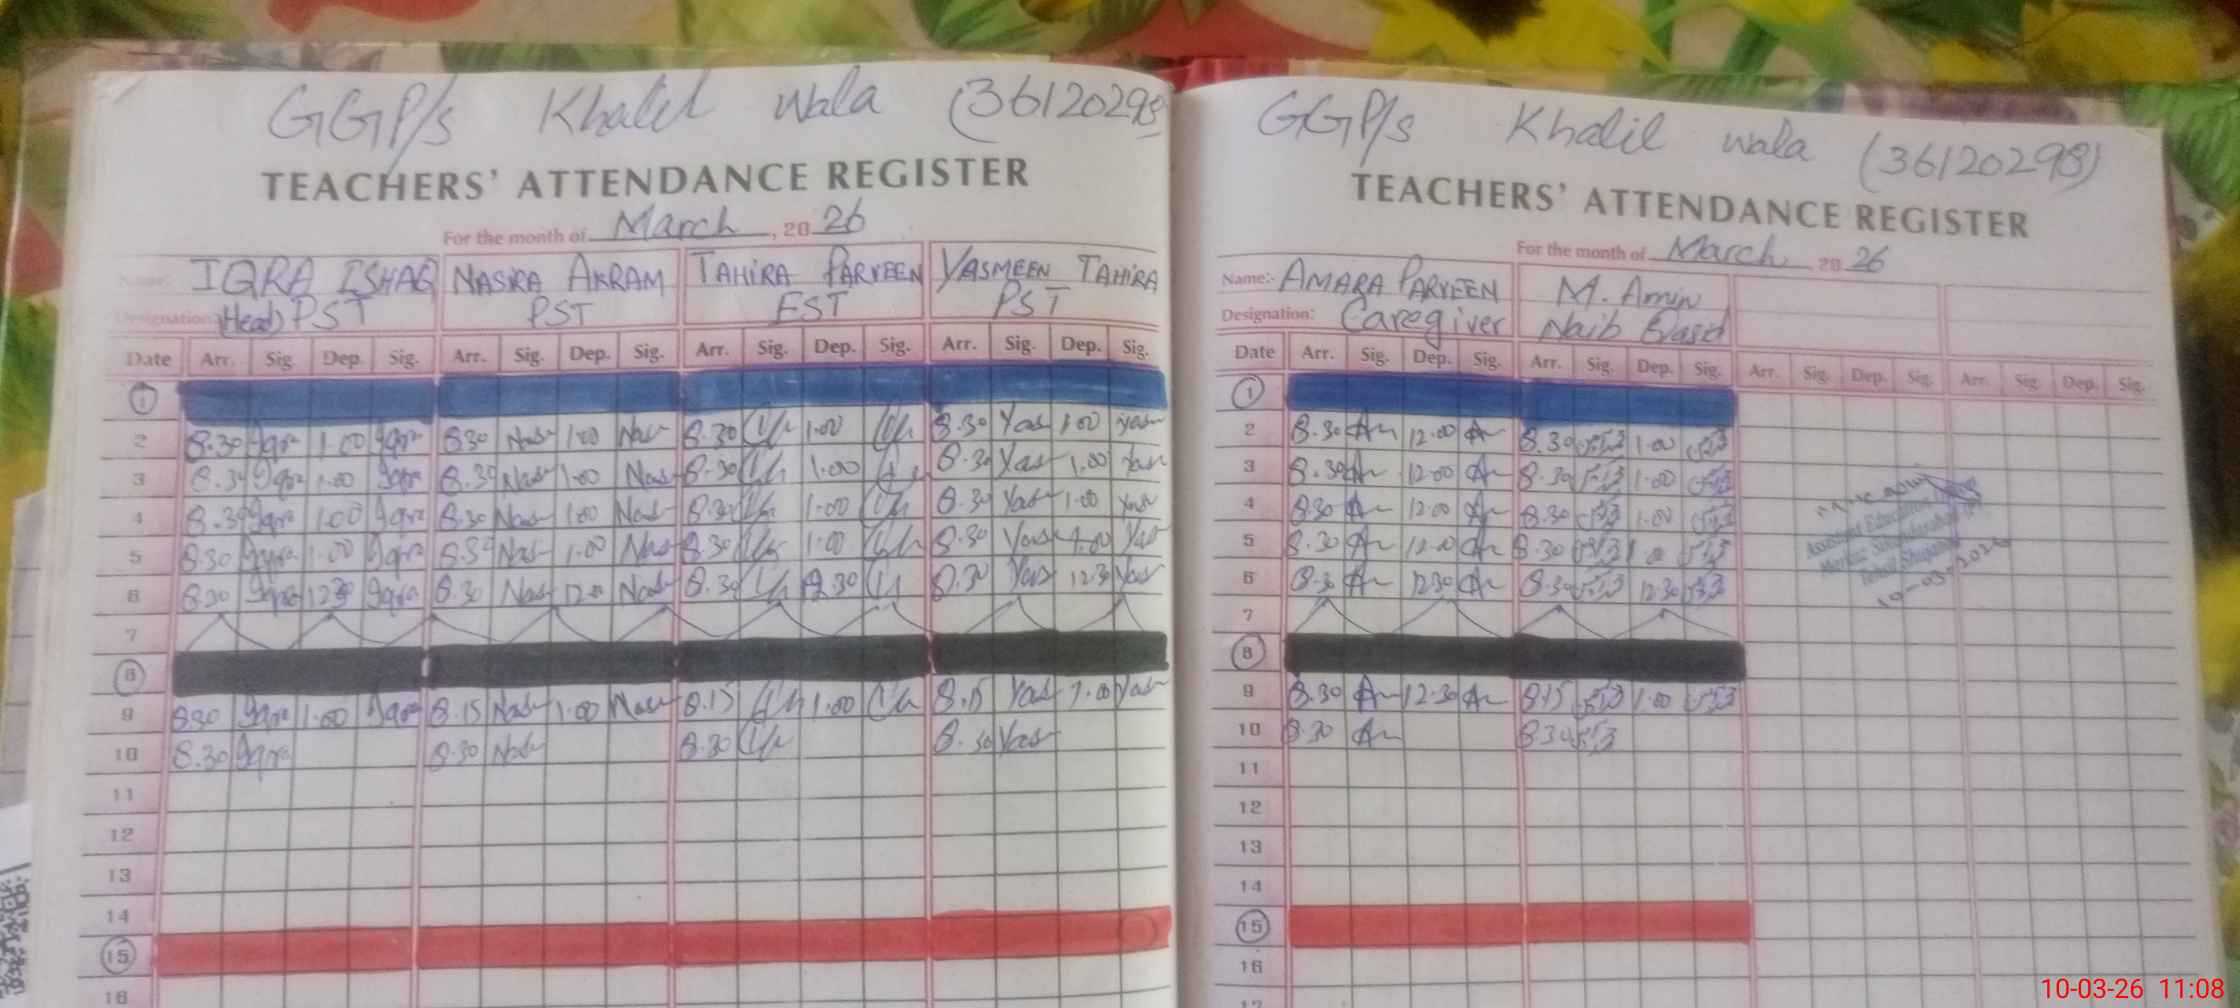 GGP/s Khalil wala (36120298)
TEACHERS' ATTENDANCE REGISTER
For the month of March, 2026
Name: IQRA ISHAQ NASIRA AKRAM TAHIRA PARVEEN YASMEEN TAHIRA
Designation: (Head) PST PST EST PST
Date Arr. Sig. Dep. Sig. Arr. Sig. Dep. Sig. Arr. Sig. Dep. Sig. Arr. Sig. Dep. Sig.
1
2 8.30 Iqra 1.00 Iqra 8.30 Nas 1.00 Nas 8.30 1.00 8.30 Yas 1.00 Yas
3 8.30 Iqra 1.00 Iqra 8.30 Nas 1.00 Nas 8.30 1.00 8.30 Yas 1.00 Yas
4 8.30 Iqra 1.00 Iqra 8.30 Nas 1.00 Nas 8.30 1.00 8.30 Yas 1.00 Yas
5 8.30 Iqra 1.00 Iqra 8.30 Nas 1.00 Nas 8.30 1.00 8.30 Yas 1.00 Yas
6 8.30 Iqra 12.30 Iqra 8.30 Nas Nas 8.30 12.30 8.30 Yas 12.30 Yas
7
8
9 8.30 Iqra 1.00 Iqra 8.15 Nas 1.00 Nas 8.15 1.00 8.15 Yas 1.00 Yas
10 8.30 Iqra 8.30 Nas 8.30 8.30 Yas
11
12
13
14
15
16
GGP/s Khalil wala (36120298)
TEACHERS' ATTENDANCE REGISTER
For the month of March, 2026
Name:- AMARA PARVEEN M. Amin
Designation: Caregiver Naib Qasid
Date Arr. Sig. Dep. Sig. Arr. Sig. Dep. Sig. Arr. Sig. Dep. Sig. Arr. Sig. Dep. Sig.
1
2 8.30 Am 12.00 Am 8.30 1.00
3 8.30 Am 12.00 Am 8.30 1.00
4 8.30 Am 12.00 Am 8.30 1.00
5 8.30 Am 12.00 Am 8.30 1.00
6 8.30 Am 12.30 Am 8.30 12.30
7
8
9 8.30 Am 12.30 Am 8.15 1.00
10 8.30 Am 8.30
11
12
13
14
15
16
17
Assistant Education
Markaz
Tehsil
10-03-2026
10-03-26 11:08